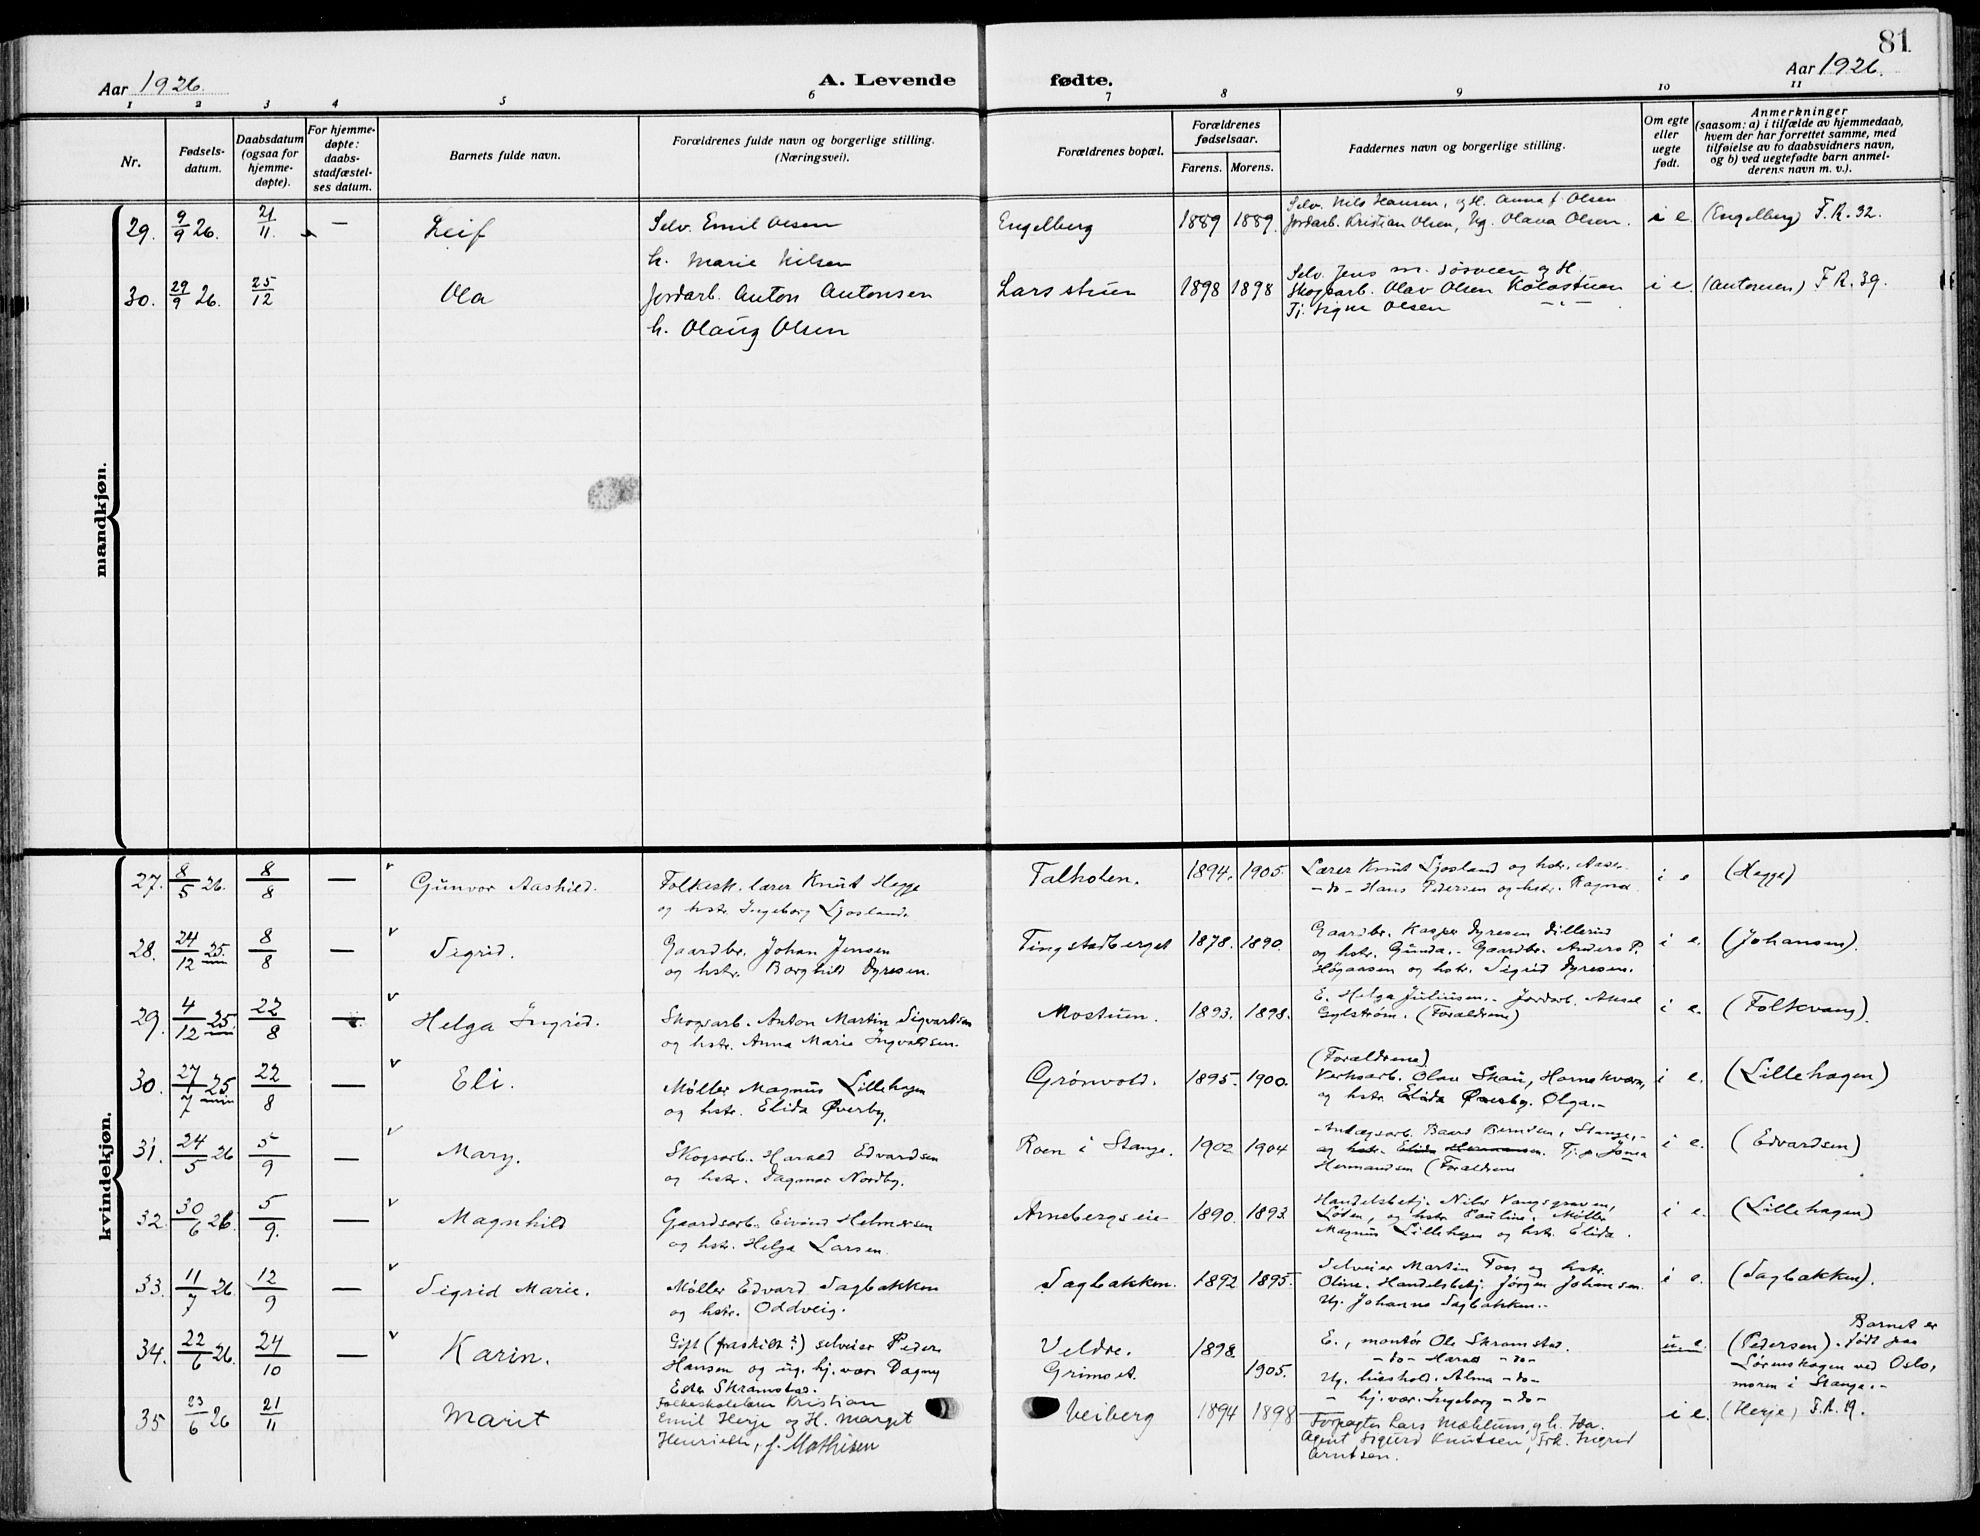 81
Aar 1926. A. Levende fødte. Aar 1926.
1 2 3 4 5 6 7 8 9 10 11
Nr.
Fødsels-
datum.
Daabsdatum
(ogsaa for
hjemme-
døpte).
For hjemme-
døpte:
daabs-
stadfæstel-
ses datum.
Barnets fulde navn.
Forældrenes fulde navn og borgerlige stilling.
(Næringsvei).
Forældrenes bopæl.
Forældrenes
fødselsaar.
Farens. Morens.
Faddernes navn og borgerlige stilling.
Om egte
eller
uegte
født.
Anmerkninger
(saasom: a) i tilfælde av hjemmedaab,
hvem der har forrettet samme, med
tilføielse av to daabsvidners navn,
og b) ved uegtefødte barn anmel-
derens navn m. v.).
mandkjøn.
29. 9/9 26. 21/11. — Leif
Selv. Emil Olsen
h. Marie Nilsen
Engelberg 1889 1889.
Selv. Nils Hansen, og H. Anna f. Olsen
Jordarb. Kristian Olsen, Ug. Olava Olsen.
i e. (Engelberg) F.R. 32.
30. 29/9 26. 25/12 Ola
Jordarb. Anton Antonsen
h. Olaug Olsen
Larsstuen 1898 1898
Selv. Jens M. Sørveen og H.
Skogsarb. Olav Olsen Kolostuen
Tj. Signe Olsen —"—
i e. (Antonsen) F.R. 39.
kvindekjøn.
27. 8/5 26. 8/8 — Gunvor Aashild.
Folkesk. lærer Knut Hegge
og hstr. Ingeborg Ljosland.
Talholen. 1894. 1905.
Lærer Knut Ljosland og hstr. Aase.
-do- Hans Pedersen og hstr. Ragna.
i e (Hegge)
28. 24/12 25. 8/8 — Sigrid.
Gaardbr. Johan Jensen
og hstr. Borghild Dyresen.
Tingstadberget 1878. 1890.
Gaardbr. Kasper Dyresen Dillerud
og hstr. Gunda. Gaardbr. Anders P.
Høgaasen og hstr. Sigrid Dyresen.
i e. (Johansen).
29. 4/12 25. 22/8 — Helga Ingrid.
Skogsarb. Anton Martin Sigvartsen
og hstr. Anna Marie Ingvaldsen.
Mostuen. 1893. 1898.
E. Helga Juliussen. Jordarb. Aksel
Gylstrøm. (Forældrene)
i e. (Folkvang).
30. 27/7 25 22/8 — Eli.
Møller Magnus Lillehagen
og hstr. Elida Øverby.
Grønvold. 1895. 1900.
(Forældrene)
Verksarb. Olav Skau, Hornekværn,
og hstr. Olga.
i e. (Lillehagen)
31. 24/5 26 5/9 — Mary.
Skogsarb. Harald Edvardsen
og hstr. Dagmar Nordby.
Roen i Stange. 1902 1904
Anlægsarb. Baard Berntsen, Stange,
og hstr. Tj. p.
Hermansen (Forældrene
i e. (Edvardsen)
32. 30/6 26. 5/9. — Magnhild
Gaardsarb. Eivind Helmersen
og hstr. Helga Larsen.
Arnebergseie 1890. 1893.
Handelsbetj. Nils Vangsgraven,
Løten, og hstr. Pauline. Møller
Magnus Lillehagen og hstr. Elida.
i e. (Lillehagen)
33. 11/7 26. 12/9 — Sigrid Marie.
Møller Edvard Sagbakken
og hstr. Oddveig.
Sagbakken. 1892 1895.
Selveier Martin Foss og hstr.
Oline. Handelsbetj. Jørgen Johansen.
Ug. Johanne Sagbakken.
i e. (Sagbakken).
34. 22/6 26. 24/10 — Karin.
Gift (fraskilt?) selveier Peder
Hansen og ug. hj. vær. Dagny
Ester Skramstad.
Veldre.
Grimset.
1898 1905.
E., montør Ole Skramstad.
-do- Harald -do-
Ug. hushold. Alma -do-
- hj. vær. Ingeborg -do-
u e. (Pedersen). Barnet er
født paa
Sørenskogen ved Oslo,
moren i Stange.
35 23/6 26 21/11 Marit
Folkeskolelærer Kristian
Emil Herje og H. Marget
Henriette, f. Mathisen
Veiberg 1894 1898
Forpagter Lars Mæhlum, og h. Ida.
Agent Sigurd Knutsen, Frk. Sigrid
Arntsen.
i e. (Herje) F.R. 19.